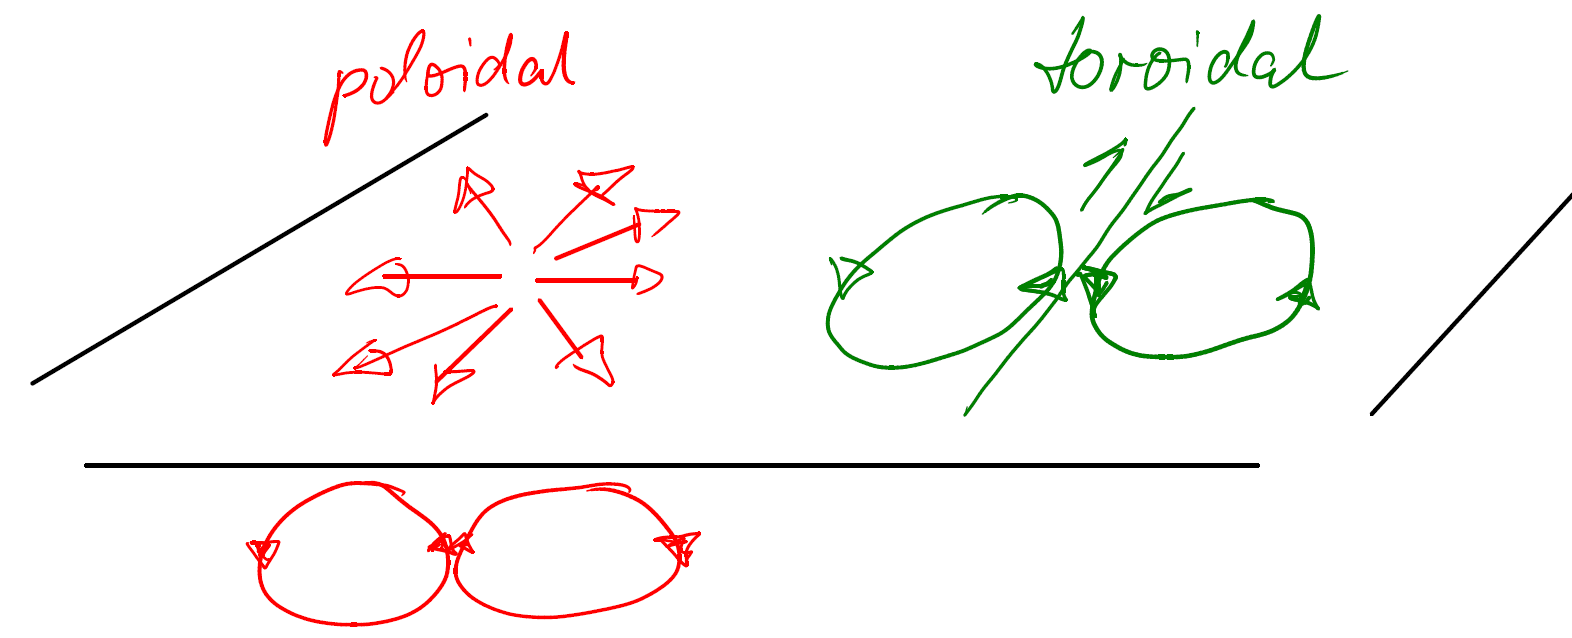 poloidal
toroidal